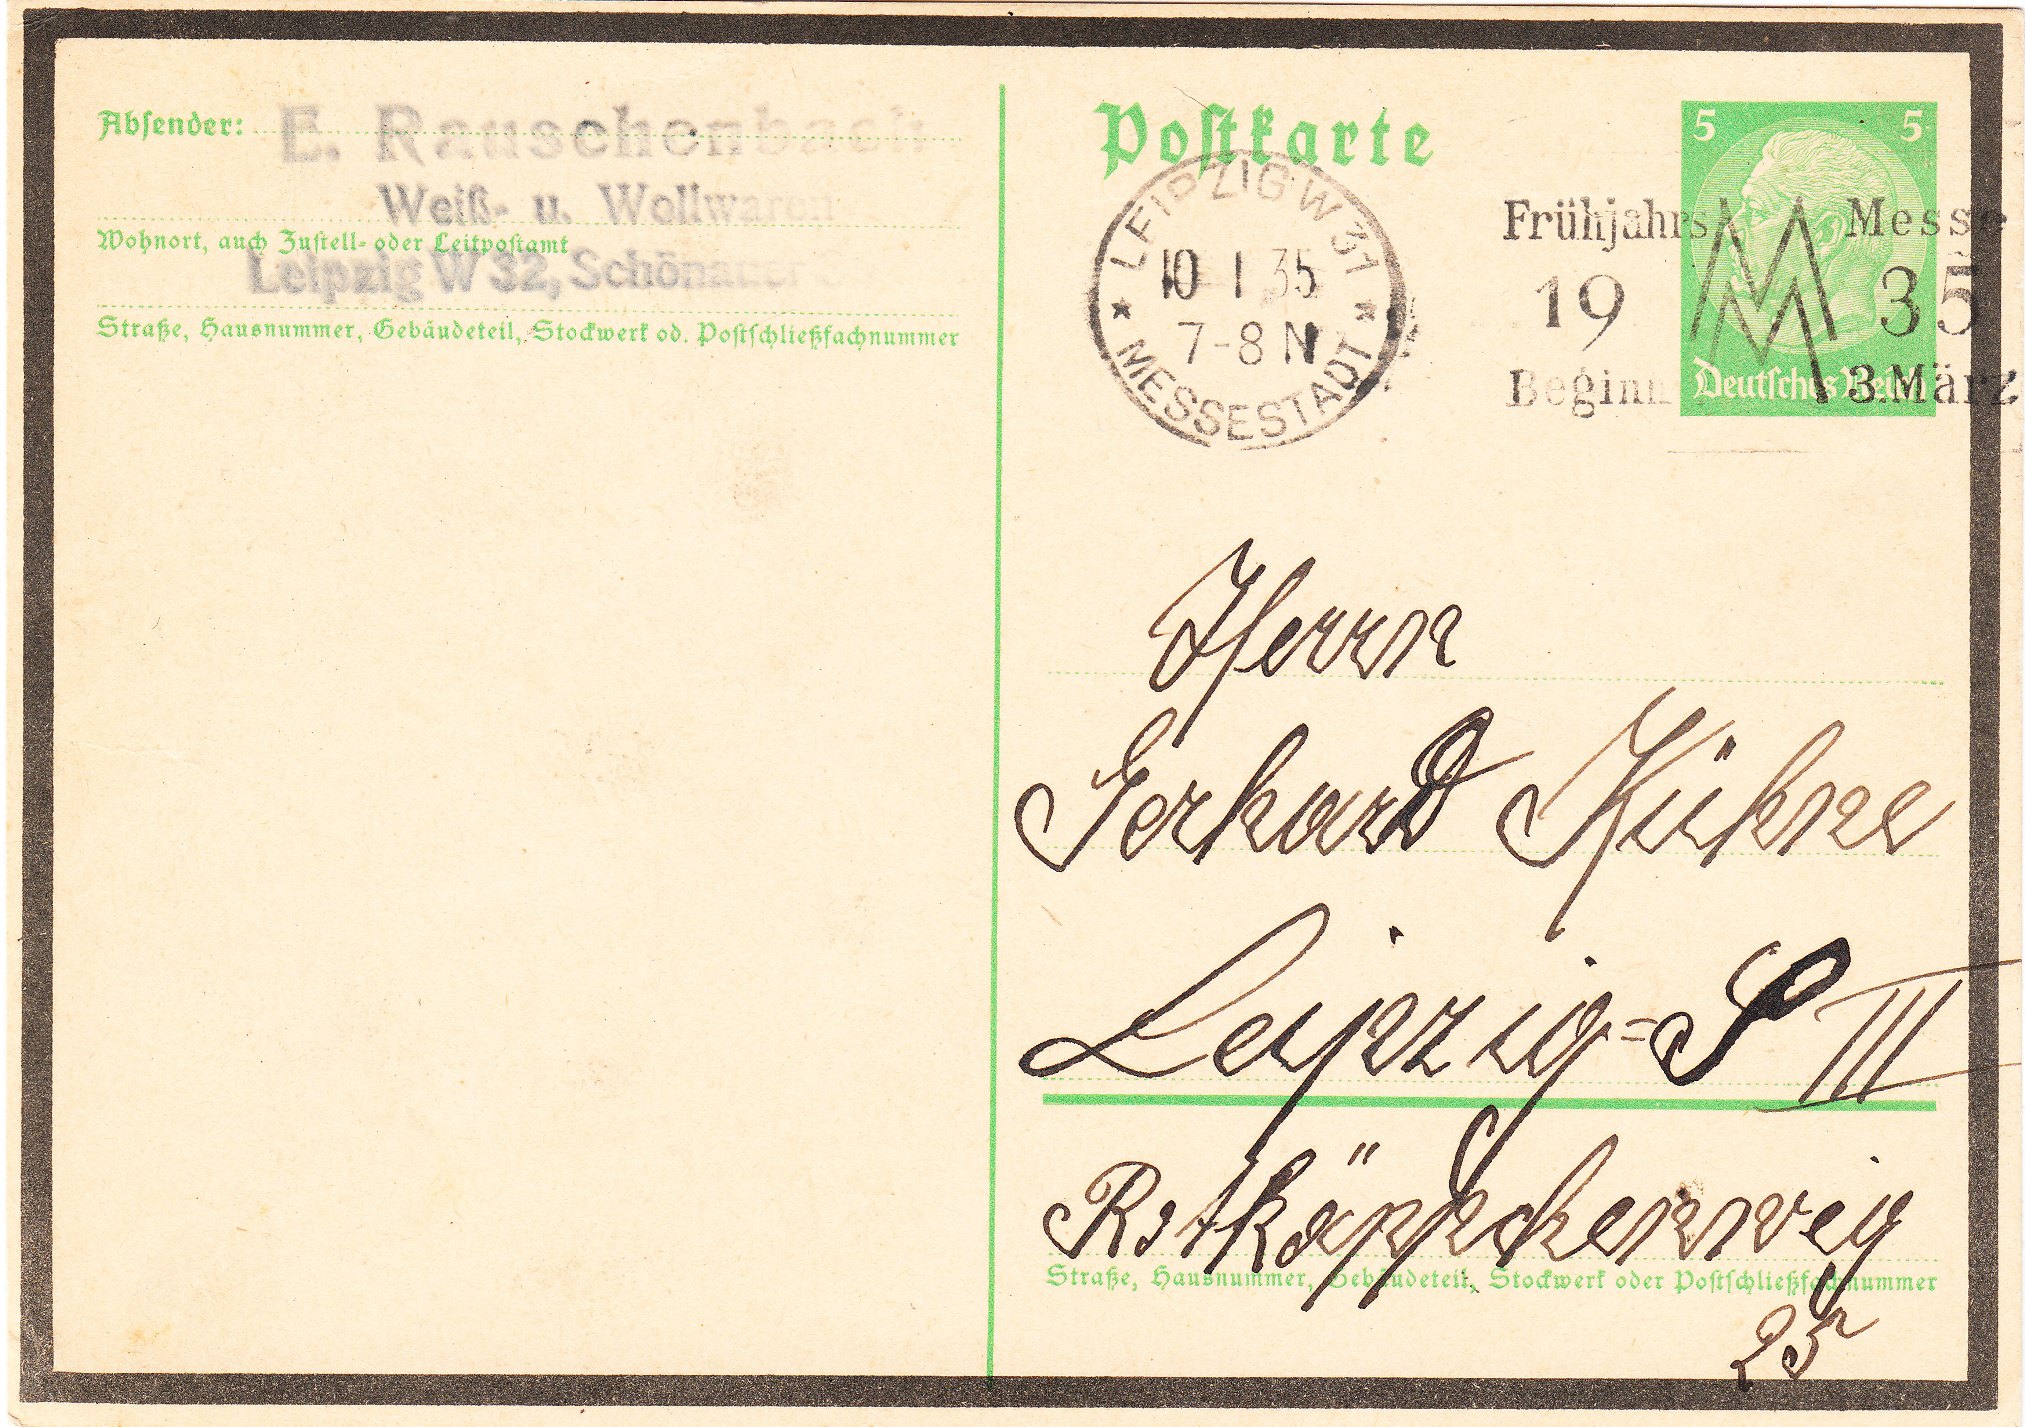 Absender:
E. Rauschenbach
Weiß- u. Wollwaren
Wohnort, auch Zustell- oder Leitpostamt
Leipzig W 32, Schönauer
Straße, Hausnummer, Gebäudeteil, Stockwerk od. Postschließfachnummer
Postkarte
LEIPZIG W 31
10 1 35
7-8 N
* MESSESTADT *
Frühjahrs Messe
19 MM 35
Beginn 3. März
5 5
Deutsches Reich
Herrn
Gerhard Kühne
Leipzig=S III
Rotkäppchenweg
Straße, Hausnummer, Gebäudeteil, Stockwerk oder Postschließfachnummer
25